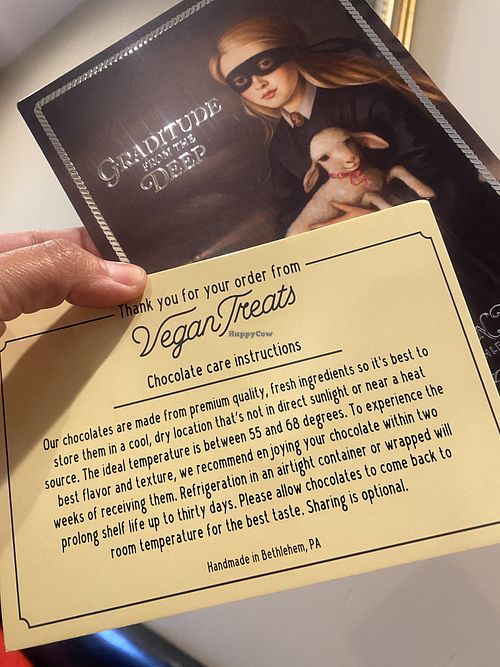 GRADITUDE
FROM THE
DEEP
Thank you for your order from
Vegan Treats
HappyCow
Chocolate care instructions
Our chocolates are made from premium quality, fresh ingredients so it's best to
store them in a cool, dry location that's not in direct sunlight or near a heat
source. The ideal temperature is between 55 and 68 degrees. To experience the
best flavor and texture, we recommend enjoying your chocolate within two
weeks of receiving them. Refrigeration in an airtight container or wrapped will
prolong shelf life up to thirty days. Please allow chocolates to come back to
room temperature for the best taste. Sharing is optional.
Handmade in Bethlehem, PA